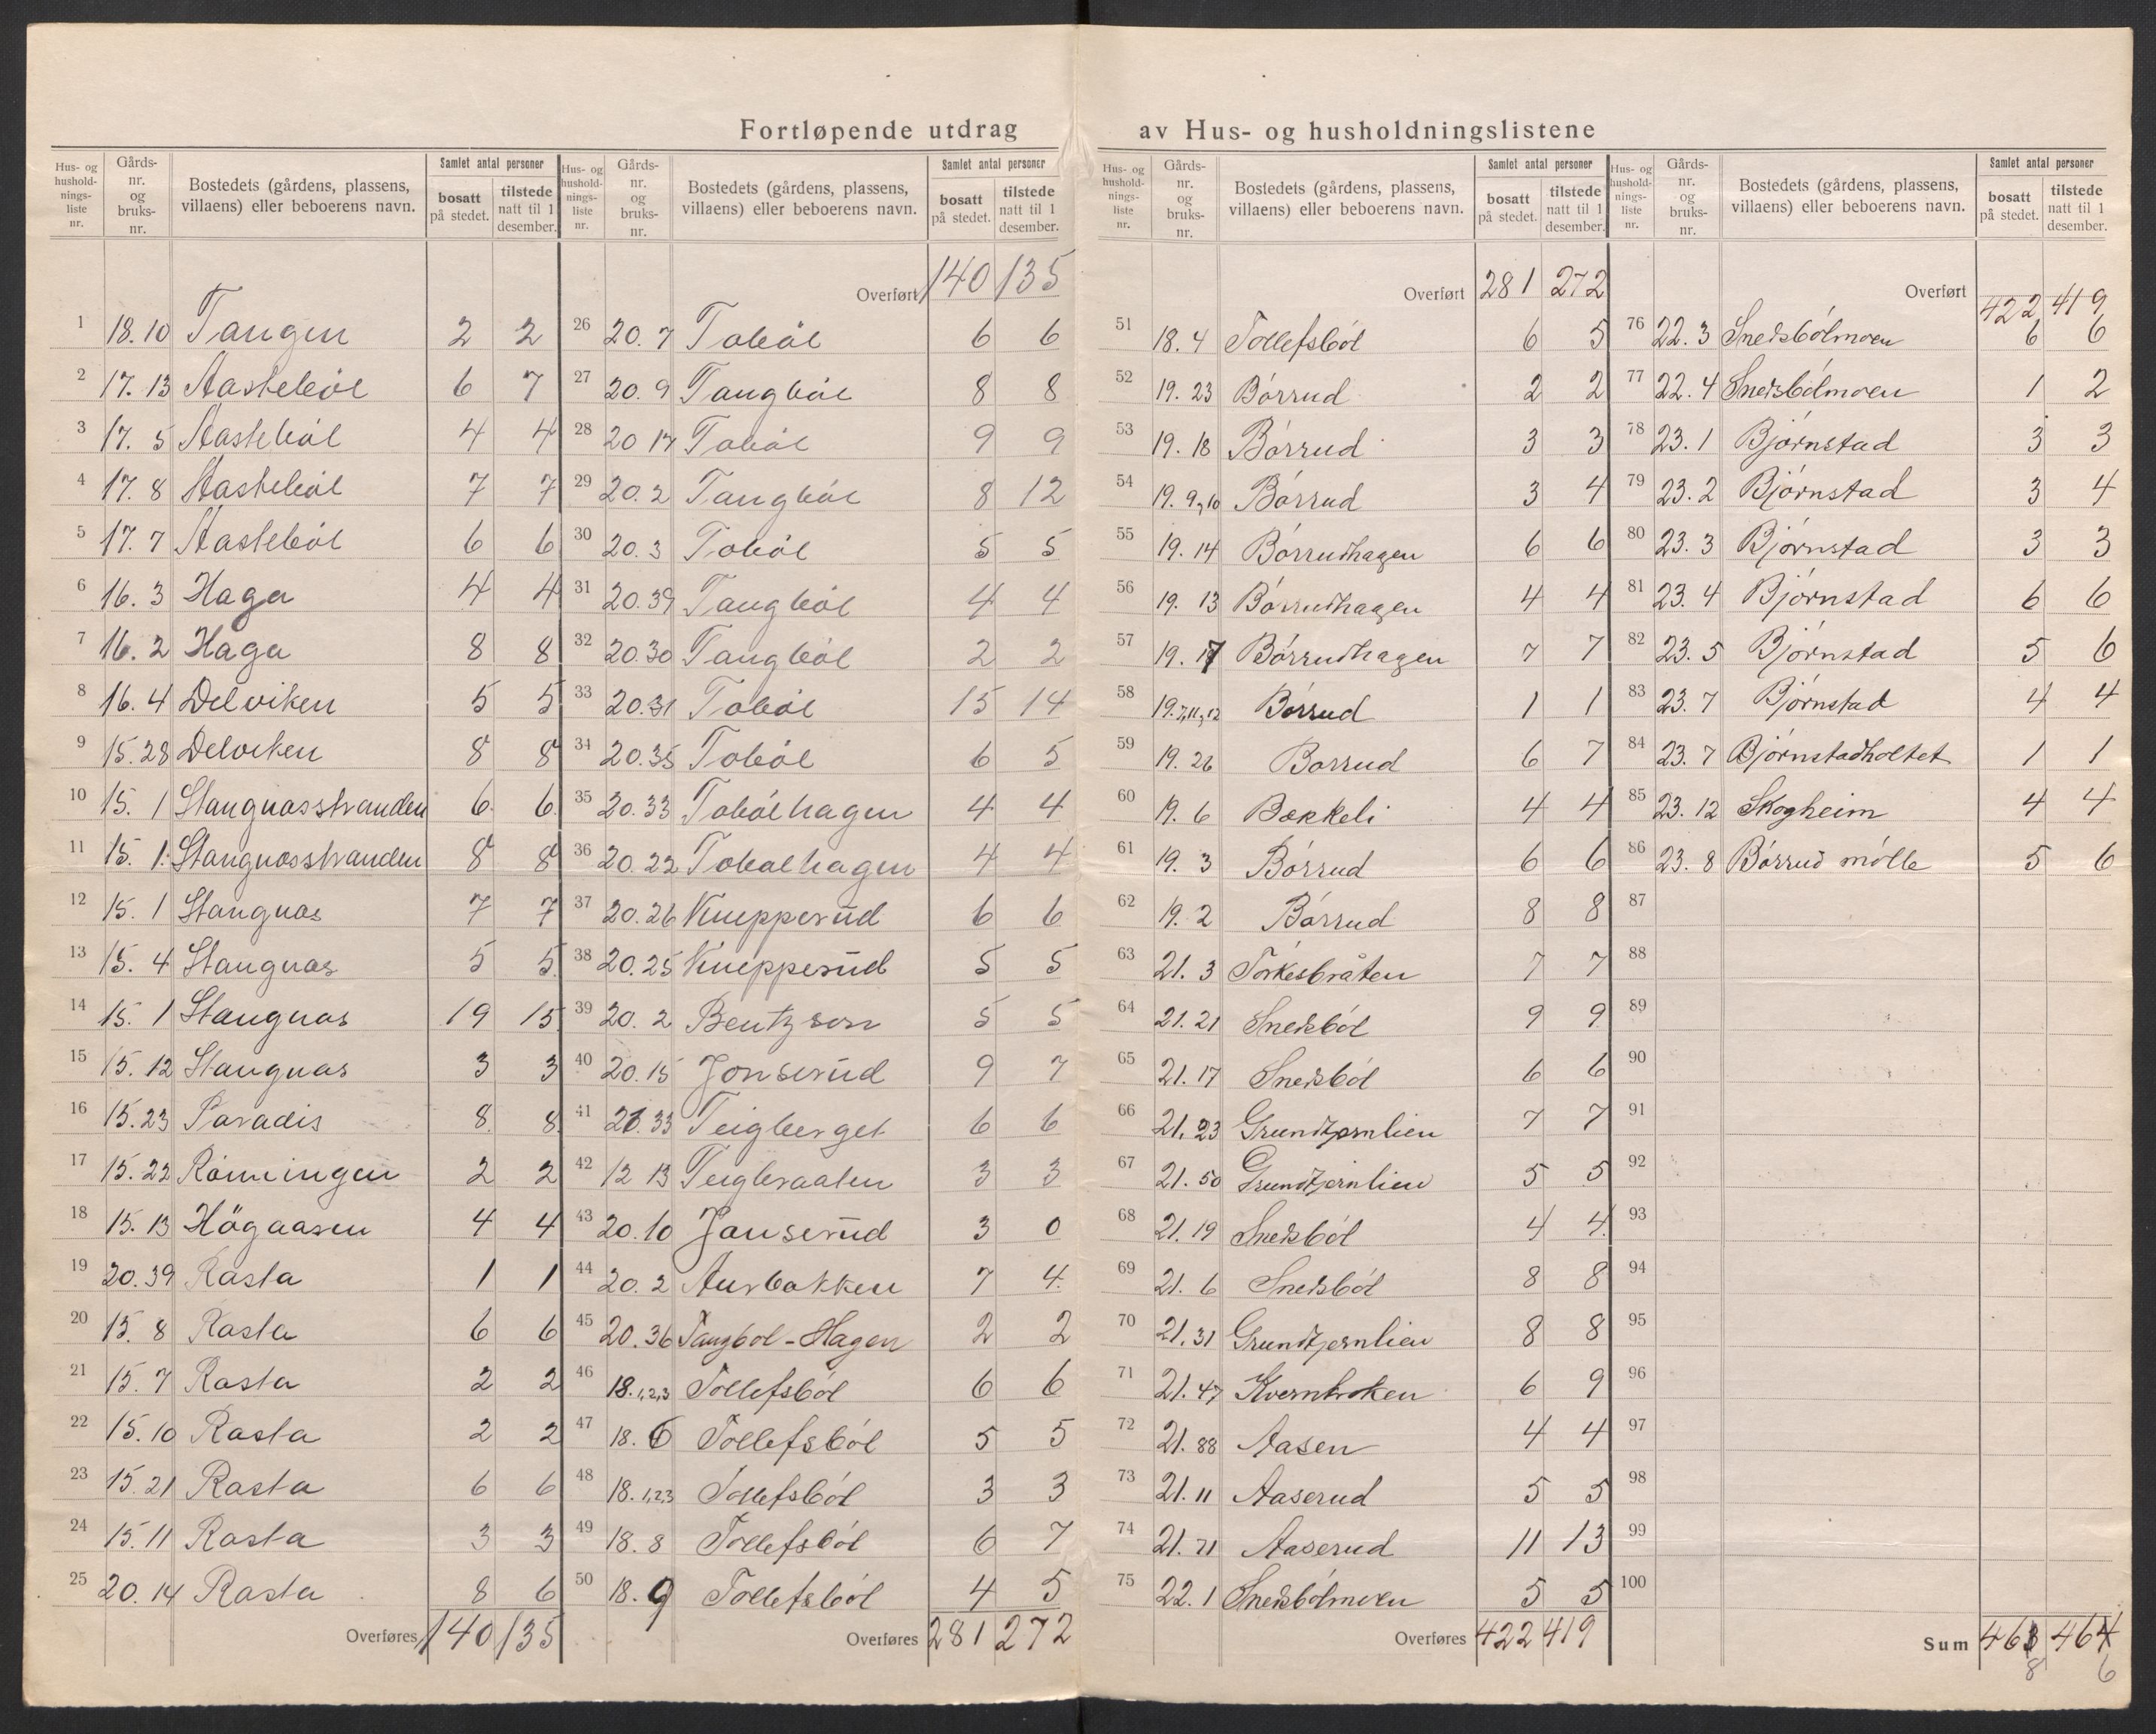 Fortløpende utdrag av Hus- og husholdningslistene
Hus- og husholdnings-liste nr. | Gårds-nr. og bruks-nr. | Bostedets (gårdens, plassens, villaens) eller beboerens navn. | Samlet antal personer | bosatt på stedet. | tilstede natt til 1 desember.
1 18.10 Tangen 2 2
2 17.13 Aastebøl 6 7
3 17.5 Aastebøl 4 4
4 17.8 Aastebøl 7 7
5 17.7 Aastebøl 6 6
6 16.3 Haga 4 4
7 16.2 Haga 8 8
8 16.4 Delviken 5 5
9 15.28 Delviken 8 8
10 15.1 Stangnasstranden 6 6
11 15.1 Stangnasstranden 8 8
12 15.1 Stangnas 7 7
13 15.4 Stangnas 5 5
14 15.1 Stangnas 19 15
15 15.12 Stangnas 3 3
16 15.23 Paradis 8 8
17 15.22 Rømmingen 2 2
18 15.13 Högaasen 4 4
19 20.39 Rasta 1 1
20 15.8 Rasta 6 6
21 15.7 Rasta 2 2
22 15.10 Rasta 2 2
23 15.21 Rasta 6 6
24 15.11 Rasta 3 3
25 20.14 Rasta 8 6
Overføres 140 135
Hus- og husholdnings-liste nr. | Gårds-nr. og bruks-nr. | Bostedets (gårdens, plassens, villaens) eller beboerens navn. | Samlet antal personer | bosatt på stedet. | tilstede natt til 1 desember.
Overført 140 135
26 20.7 Tobøl 6 6
27 20.9 Tangbøl 8 8
28 20 17 Tobøl 9 9
29 20.2 Tangbøl 8 12
30 20.3 Tobøl 5 5
31 20.39 Tangbøl 4 4
32 20.30 Tangbøl 2 2
33 20.31 Tobøl 15 14
34 20.35 Tobøl 6 5
35 20.33 Tobølhagen 4 4
36 20.22 Tobølhagen 4 4
37 20.26 Knepperud 6 6
38 20.25 Knepperud 5 5
39 20.2 Bentzson 5 5
40 20.15 Jonserud 9 7
41 21.33 Teigberget 6 6
42 12 13 Teigbraaten 3 3
43 20.10 Janserud 3 0
44 20.2 Aurbakken 7 4
45 20.36 Tangbøl-Hagen 2 2
46 18.1,2,3 Tollefsbøl 6 6
47 18.6 Tollefsbøl 5 5
48 18.1,2,3 Tollefsbøl 3 3
49 18.8 Tollefsbøl 6 7
50 18.9 Tollefsbøl 4 5
Overføres 281 272
Hus- og husholdnings-liste nr. | Gårds-nr. og bruks-nr. | Bostedets (gårdens, plassens, villaens) eller beboerens navn. | Samlet antal personer | bosatt på stedet. | tilstede natt til 1 desember.
Overført 281 272
51 18.4 Tollefsbøl 6 5
52 19.23 Børrud 2 2
53 19.18 Børrud 3 3
54 19.9,10 Børrud 3 4
55 19.14 Børrudhagen 6 6
56 19.13 Børrudhagen 4 4
57 19.17 Børrudhagen 7 7
58 19.7,11,12 Børrud 1 1
59 19.26 Børrud 6 7
60 19.6 Bækkeli 4 4
61 19.3 Børrud 6 6
62 19.2 Børrud 8 8
63 21.3 Torkesbråten 7 7
64 21.21 Snedsbøl 9 9
65 21.17 Snedsbøl 6 6
66 21.23 Grundtjernlien 7 7
67 21.50 Grundtjernlien 5 5
68 21.19 Snedsbøl 4 4
69 21.6 Snedsbøl 8 8
70 21.31 Grundtjernlien 8 8
71 21.47 Kvernkroken 6 9
72 21.88 Aasen 4 4
73 21.11 Aaserud 5 5
74 21.71 Aaserud 11 13
75 22.1 Snedsbølmoen 5 5
Overføres 422 419
Hus- og husholdnings-liste nr. | Gårds-nr. og bruks-nr. | Bostedets (gårdens, plassens, villaens) eller beboerens navn. | Samlet antal personer | bosatt på stedet. | tilstede natt til 1 desember.
Overført 422 419
76 22.3 Snedsbølmoen 6 6
77 22.4 Snedsbølmoen 1 2
78 23.1 Bjørnstad 3 3
79 23.2 Bjørnstad 3 4
80 23.3 Bjørnstad 3 3
81 23.4 Bjørnstad 6 6
82 23.5 Bjørnstad 5 6
83 23.7 Bjørnstad 4 4
84 23.7 Bjørnstadholtet 1 1
85 23.12 Skogheim 4 4
86 23.8 Børrud mølle 5 6
87
88
89
90
91
92
93
94
95
96
97
98
99
100
Sum 463 464
8 6